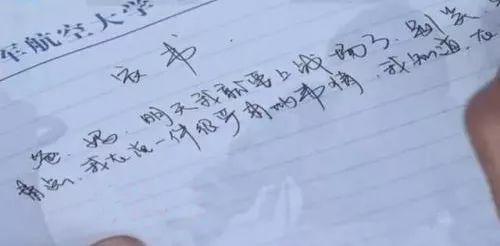 军航空大学
家书
爸、妈、明天我就要上战场了、别
我在做一件很 的事情、我知道、在